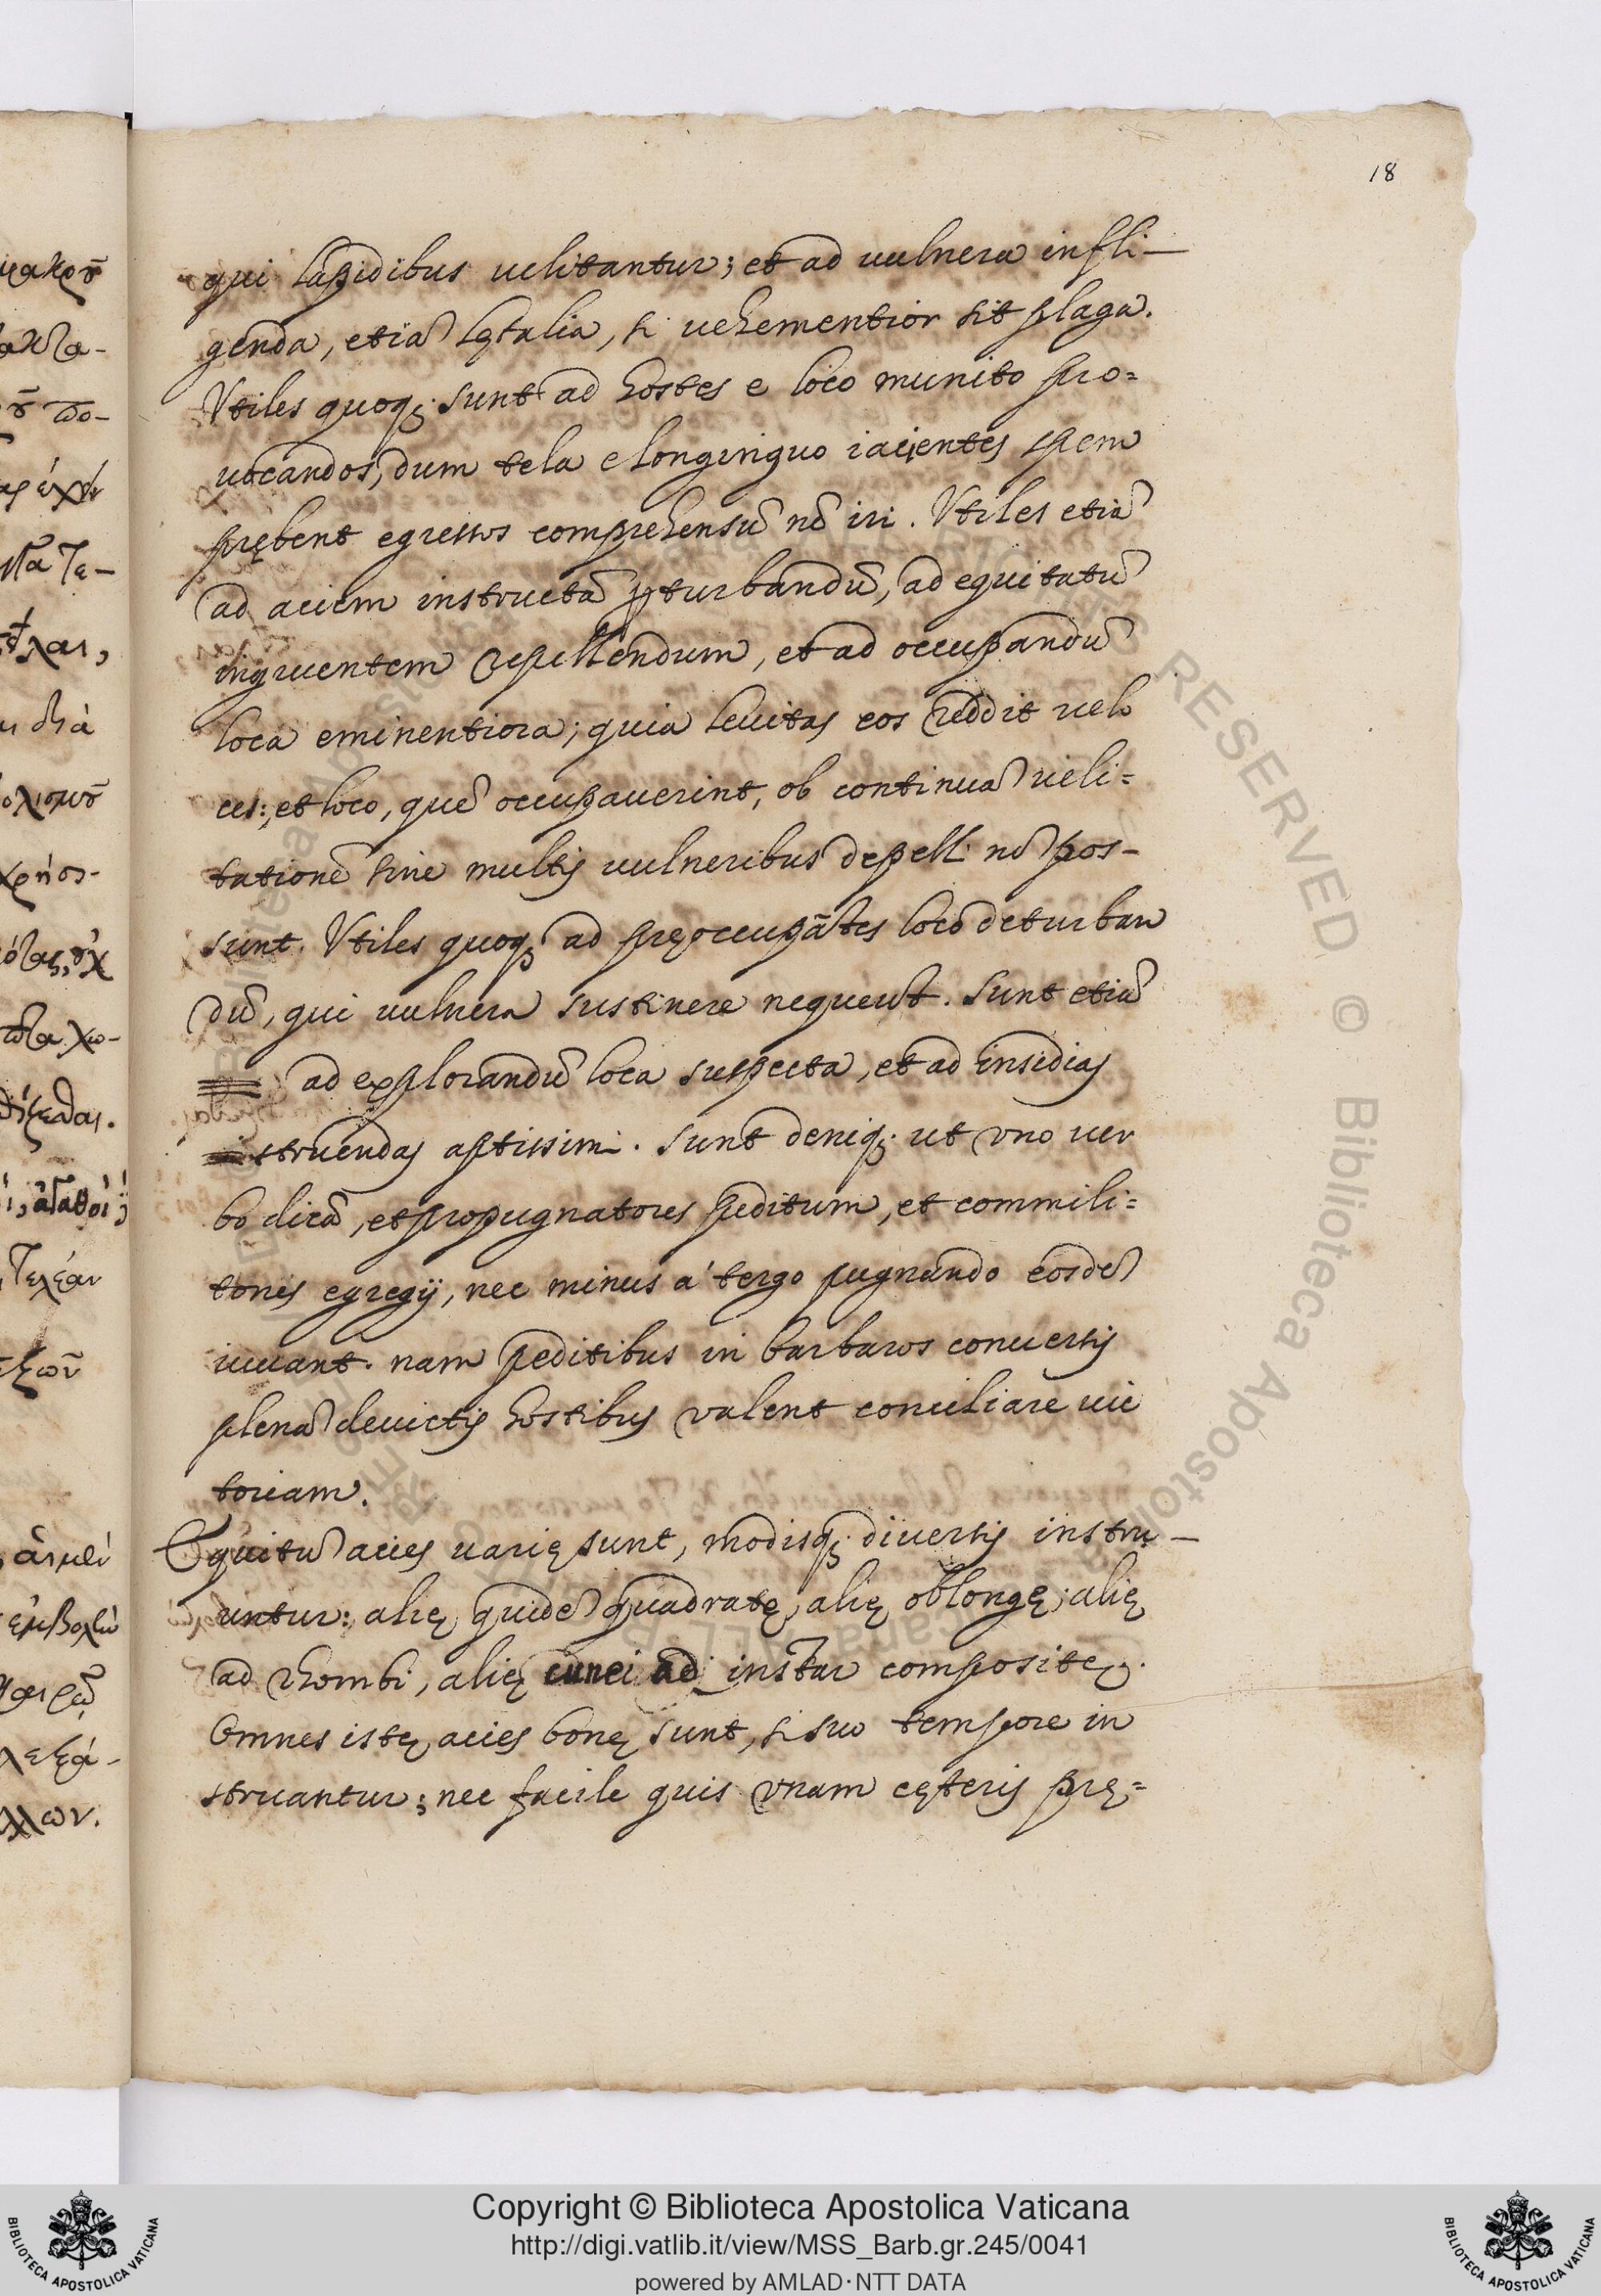 18
qui lapidibus uelitantur; et ad uulnera infli-
genda, etiã lętalia, si uehementior sit plaga.
Vtiles quoq; sunt ad hostes e loco munito pro=
uocandos, dum tela e longinquo iacientes spem
prębent egressos comprehensũ nõ iri. Vtiles etiã
ad aciem instructã ꝑturbandũ, ad equitatũ
ingruentem repellendum, et ad occupandũ
loca eminentiora; quia leuitas eos reddit uelo
ces: et loco, quẽ occupauerint, ob continuã ueli=
tationẽ sine multis uulneribus depelli nõ pos-
sunt. Vtiles quoq; ad pręoccupãtes loco deturban
dũ, qui uulnera sustinere nequeunt. Sunt etiã
ad explorandũ loca suspecta, et ad insidias
struendas aptissimi. Sunt deniq; ut vno uer
bo dicã, et propugnatores peditum, et commili=
tones egregij, nec minus à tergo pugnando eosdẽ
iuuant. nam peditibus in barbaros conuersis
plenã deuictis hostibus valent conciliare uic
toriam.
Equitũ acies uarię sunt, modisq; diuersis instru-
untur: alię quidẽ quadratę, alię oblongę, alię
ad rhombi, alię cunei ad instar compositę.
Omnes istę acies bonę sunt, si suo tempore in
struantur; nec facile quis vnam cęteris prę=
Copyright © Biblioteca Apostolica Vaticana
http://digi.vatlib.it/view/MSS_Barb.gr.245/0041
powered by AMLAD·NTT DATA